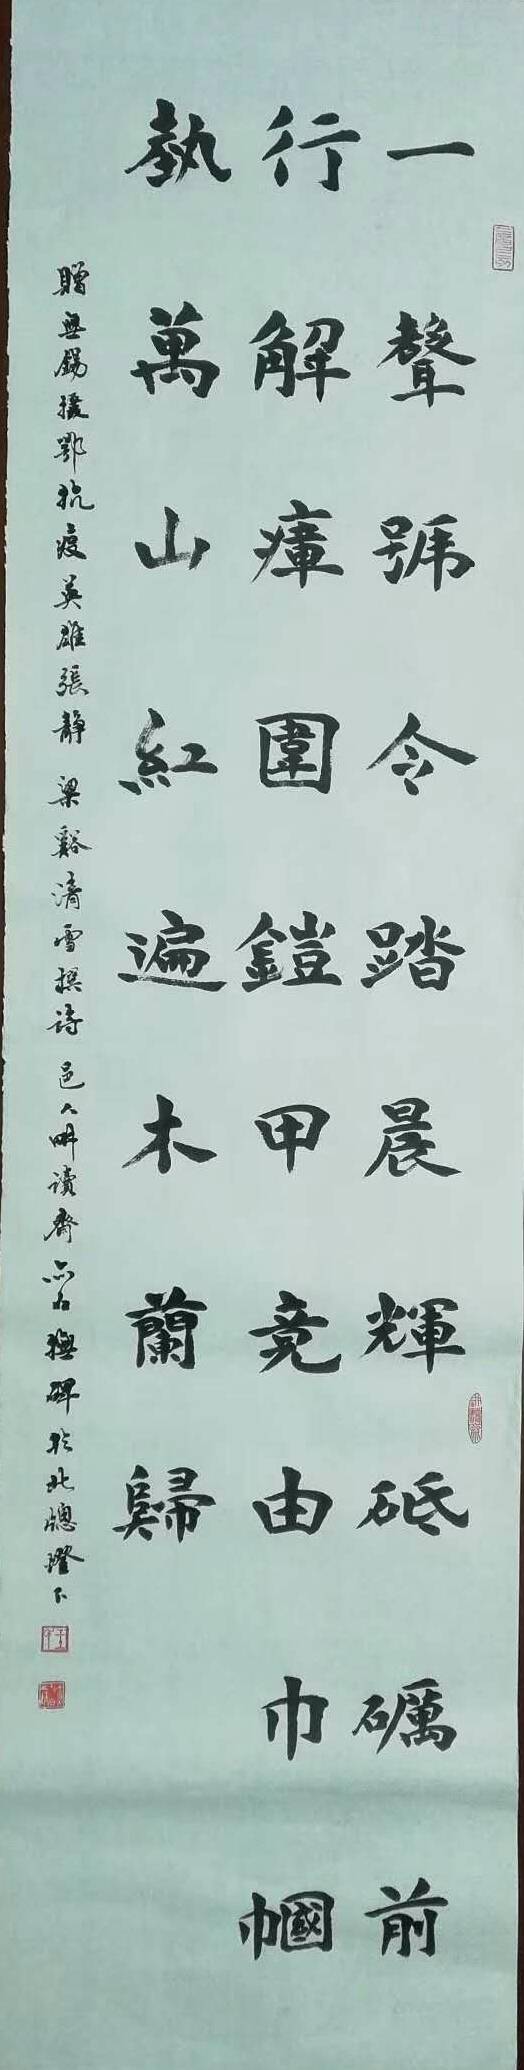 一聲號令踏晨輝砥礪前
行解瘴圍鎧甲竞由巾幗
執萬山紅遍木蘭歸
贈無錫援鄂抗疫英雄張靜 梁谿清雪撰詩 邑人畊讀齋
碑於北窗燈下